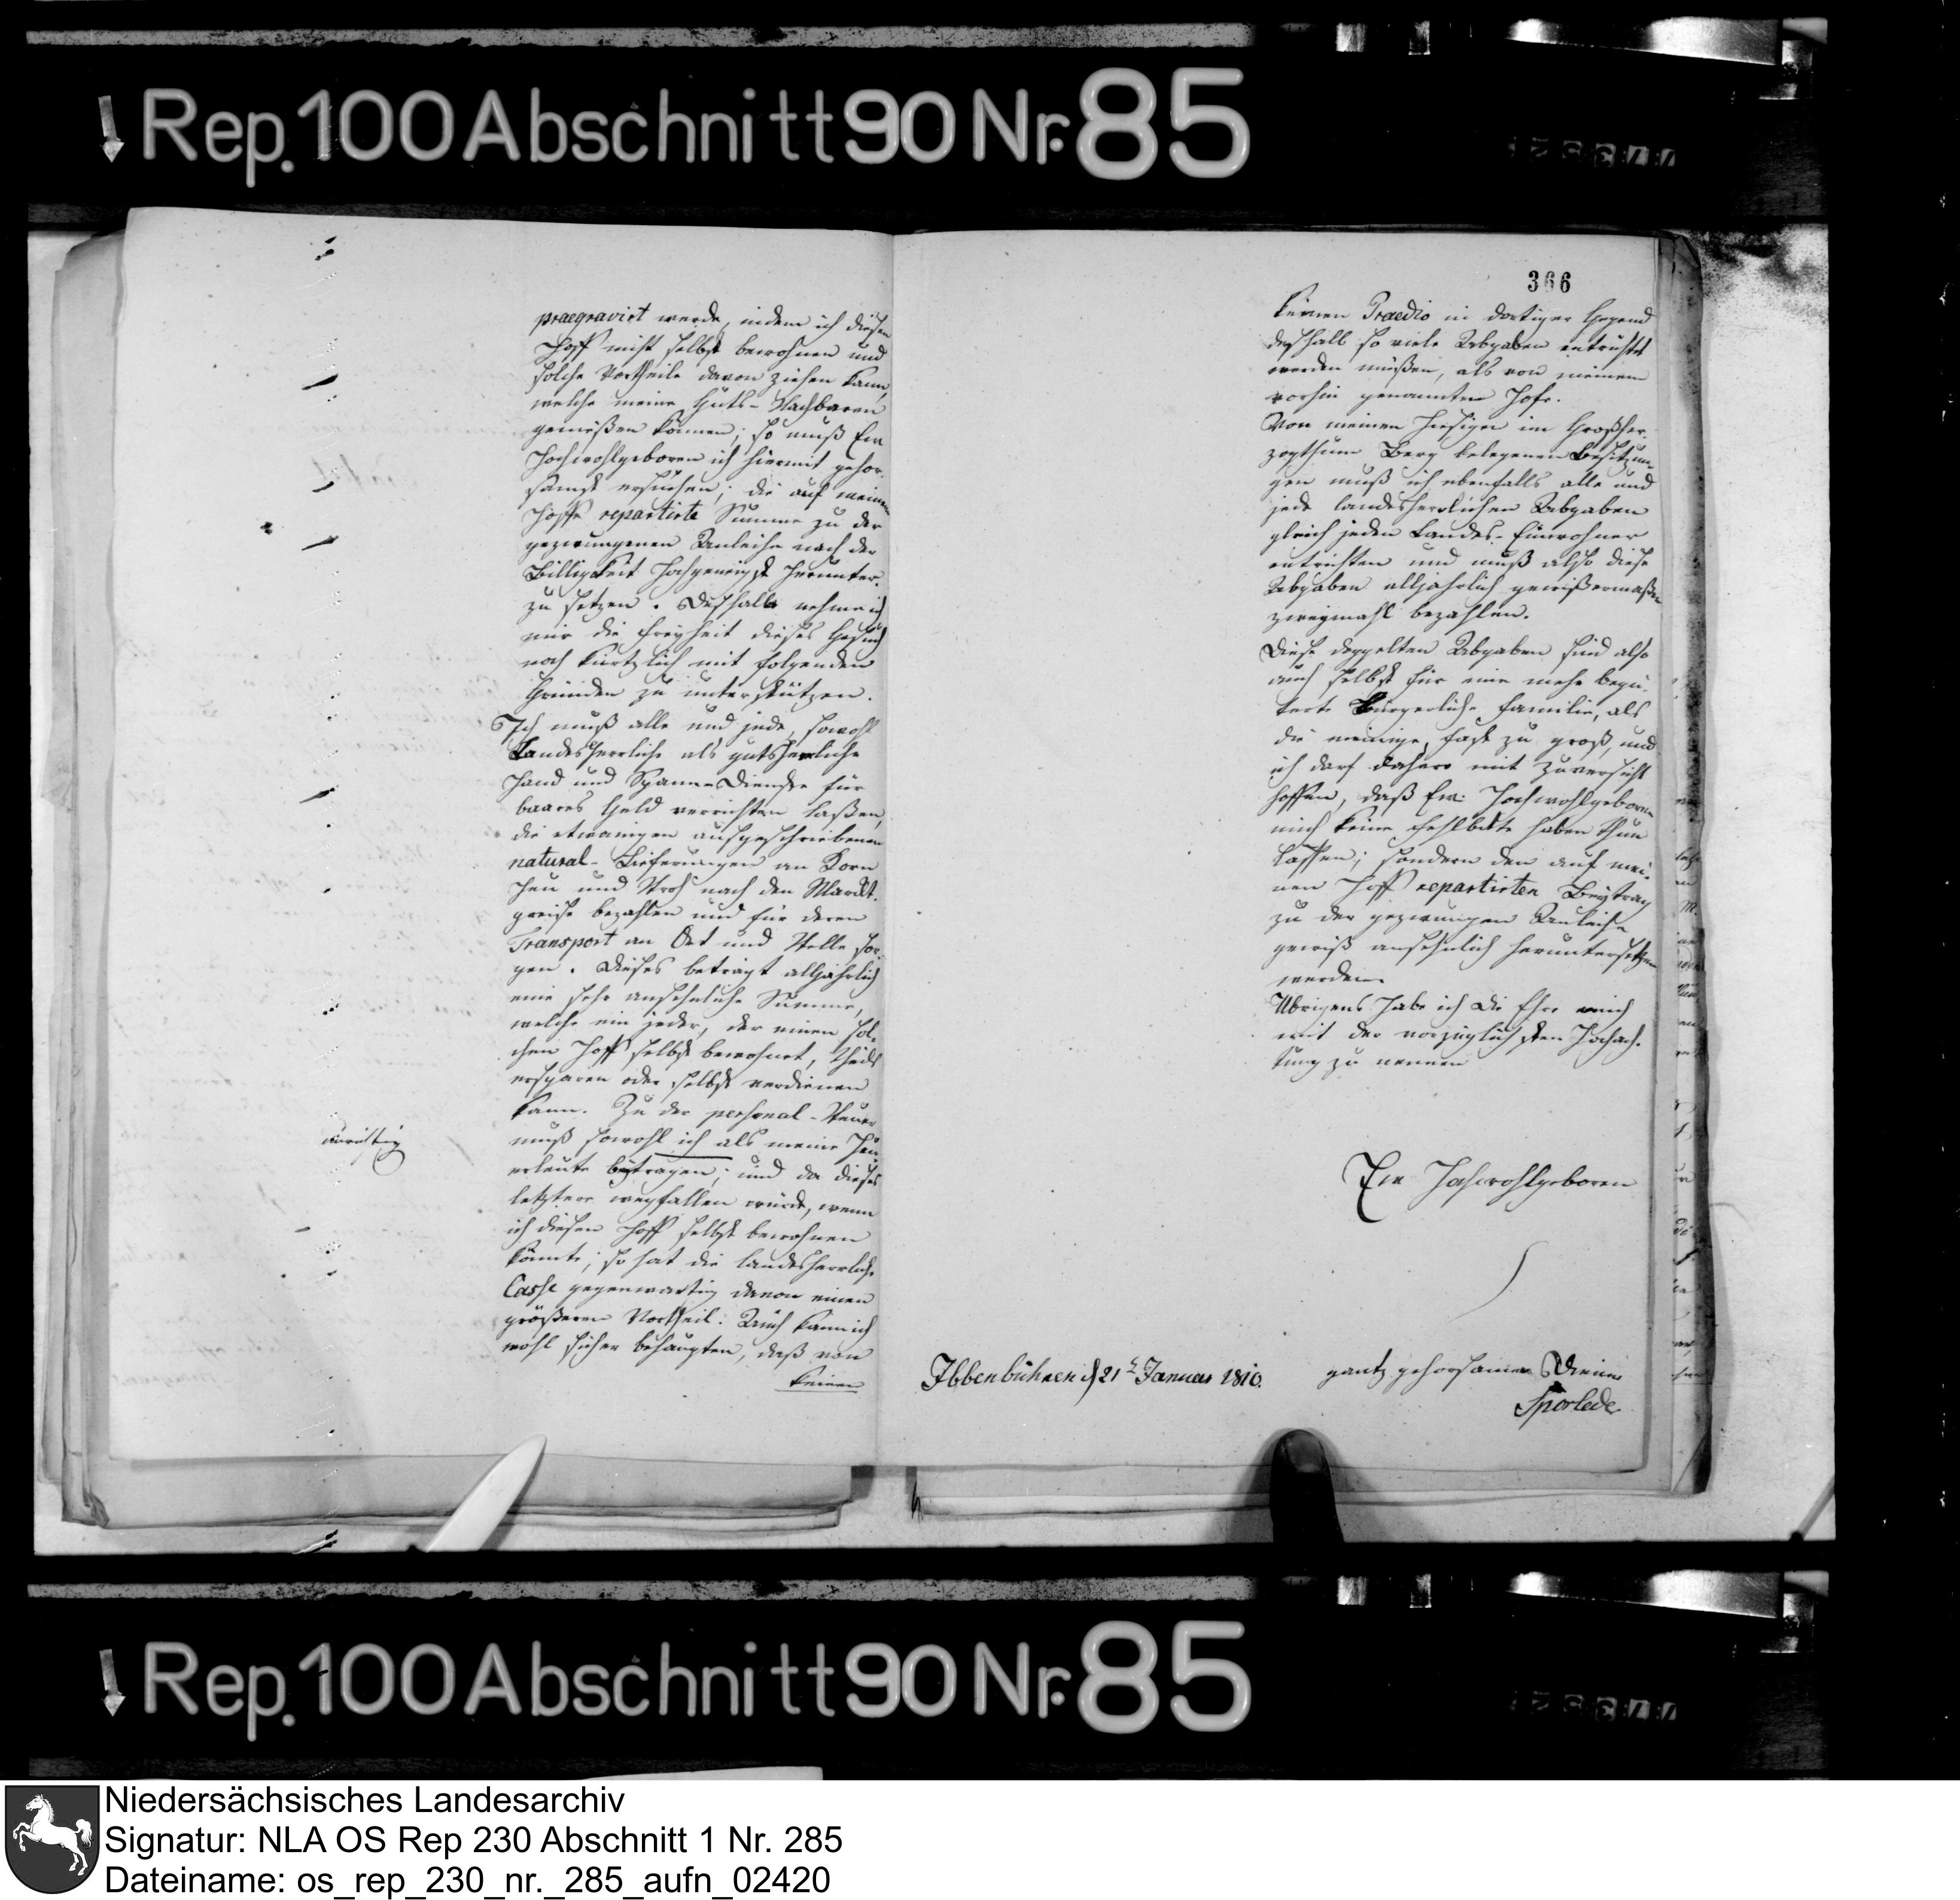 Rep. 100 Abschnitt 90 Nr. 85
praegravirt werde, indem ich diesen
Hoff nicht selbst bewohnen und
solche Vortheile davon ziehen kann,
welche meine Guts-Nachbaren
genießen können; so muß Ew
Hochwohlgeboren ich hiermit gehor-
samst ersuchen; die auf meinen
Hoffe repartirte Summe zu der
gezwungenen Anleihe nach der
Billigkeit hochgeneigst herunter
zu setzen. Deshalb nehme ich
mir die Freyheit dieses Gesuch
noch kürtzlich mit folgenden
Gründen zu unterstützen.
Ich muß alle und jede, sowohl
Landesherrliche als gutsherrliche
Hand und Spann-Dienste für
baares Geld verrichten laßen,
die etwaigen ausgeschriebenen
natural-Lieferungen an Korn
Heu und Stroh nach den Marckt-
preise bezahlen und für deren
Transport an Ort und Stelle sor-
gen. Dieses beträgt alljährlich
eine sehr ansehnliche Summe,
welche ein jeder, der einen sol-
chen Hoff selbst bewohnet, theils
ersparen oder selbst verdienen
kann. Zu der personal-Steuer
muß sowohl ich als meine Heu-
erleute beytragen; und da dieses
letztere wegfallen würde, wenn
ich diesen Hoff selbst bewohnen
könnte; so hat die landesherrliche
Casse gegenwärtig davon einen
größeren Vortheil. Auch kann ich
wohl sicher behaupten, daß von
keinen
unrichtig
366
keinen Praedio in dortiger Gegend
deshalb so viele Abgaben entrichtet
werden müßen, als von meinem
vorhin genannten Hofe.
Von meinen hiesigen im Großher-
zogthum Berg belegenen Besitzun-
gen muß ich ebenfalls alle und
jede landesherrlichen Abgaben
gleich jeden Landes-Einwohner
entrichten und muß also diese
Abgaben alljährlich gewißermaßen
zweymahl bezahlen.
Diese doppelten Abgaben sind also
auch selbst für eine mehr begü-
terte Bürgerliche Familie, als
die meinige, fast zu groß, und
ich darf dahero mit Zuversicht
hoffen, daß Ew: Hochwohlgeboren
mich keine Fehlbitte haben thun
lassen; sondern den auf mei-
nen Hoff repartirten Beytrag
zu der gezwungen Anleihe
gewiß ansehnlich heruntersetzen
werden.
Übrigens habe ich die Ehre mich
mit der vorzüglichsten Hochach-
tung zu nennen
Ew Hochwohlgeboren
Ibbenbühren d 21t Januar 1810.
gantz gehorsamer Diener
Sporleder
Rep. 100 Abschnitt 90 Nr. 85
Niedersächsisches Landesarchiv
Signatur: NLA OS Rep 230 Abschnitt 1 Nr. 285
Dateiname: os_rep_230_nr._285_aufn_02420